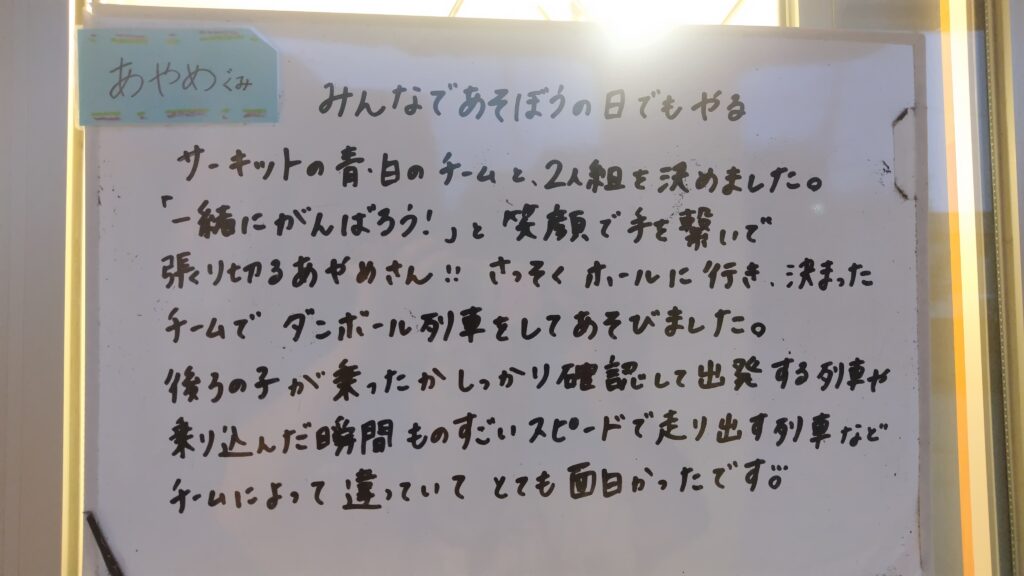 あやめぐみ
みんなであそぼうの日でもやる
サーキットの青・白のチームと、2人組を決めました。
「一緒にがんばろう!」と笑顔で手を繋いで
張り切るあやめさん!! さっそくホールに行き、決まった
チームでダンボール列車をしてあそびました。
後ろの子が乗ったかしっかり確認して出発する列車や
乗り込んだ瞬間ものすごいスピードで走り出す列車など
チームによって違っていてとても面白かったです。